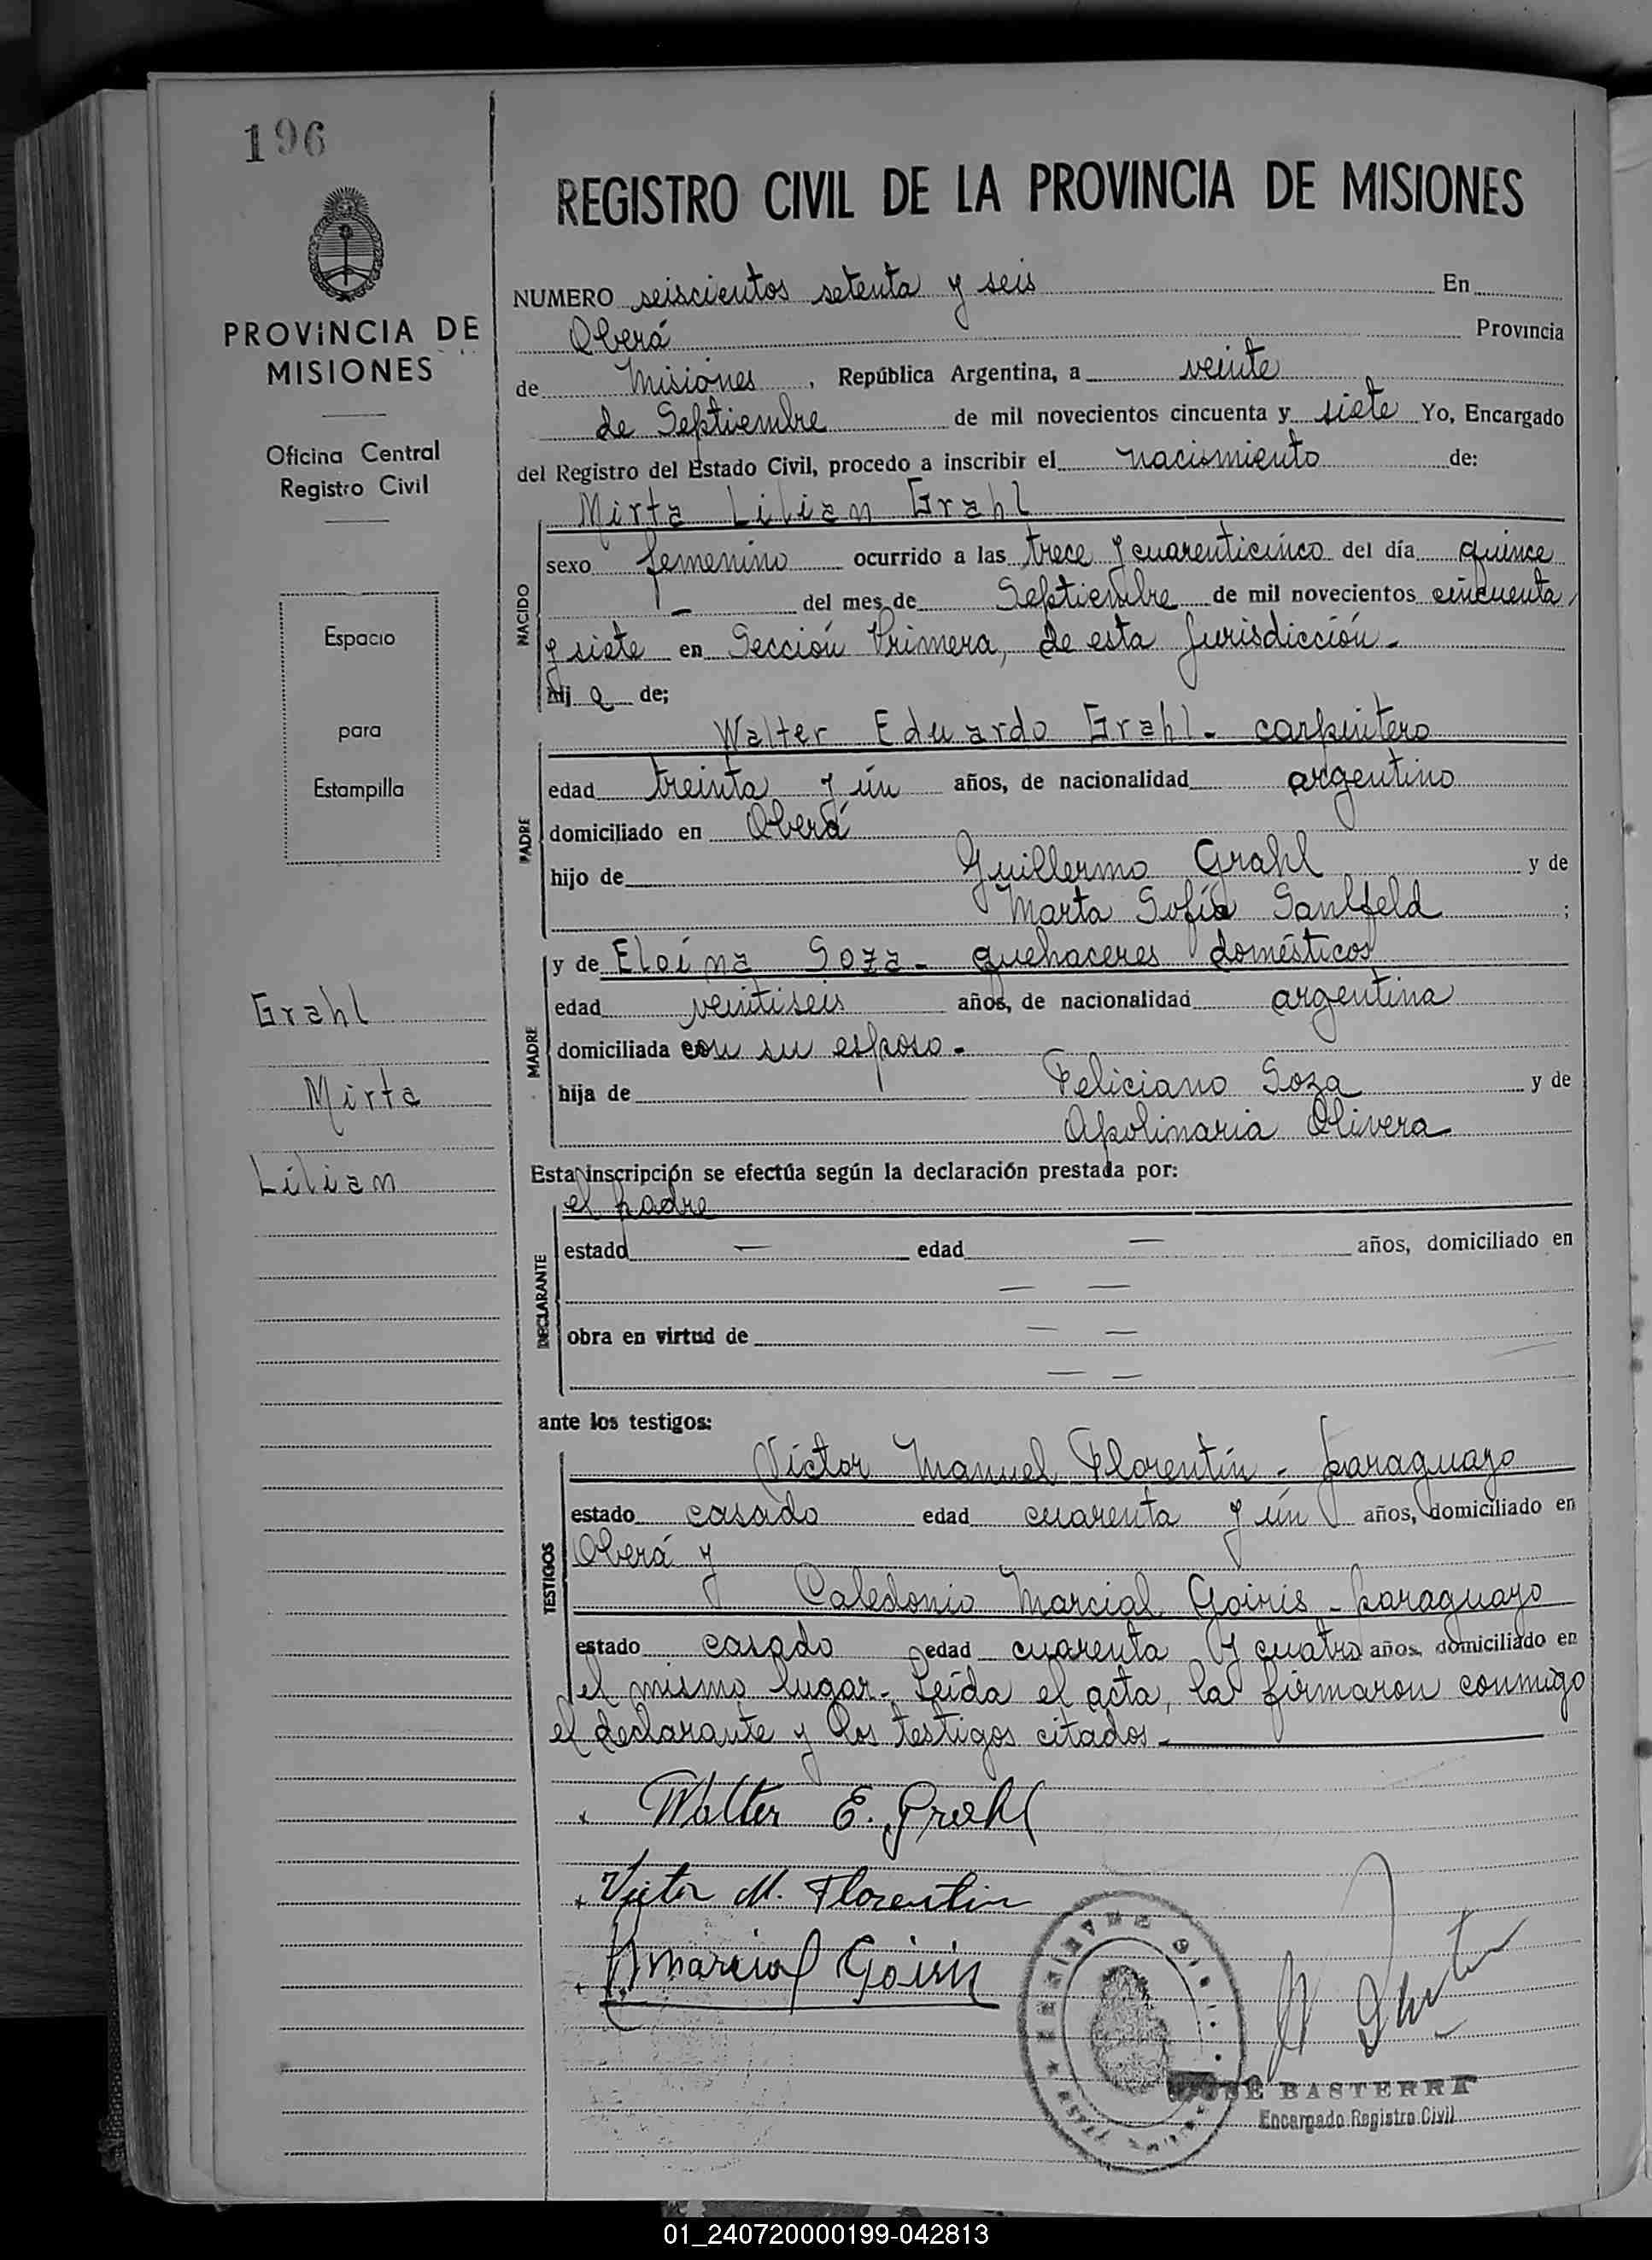 196
PROVINCIA DE
MISIONES
Oficina Central
Registro Civil
Espacio
para
Estampilla
Grahl
Mirta
Lilian
REGISTRO CIVIL DE LA PROVINCIA DE MISIONES
NUMERO seiscientos setenta y seis En
Oberá Provincia
de Misiones, República Argentina, a veinte
de Septiembre de mil novecientos cincuenta y siete Yo, Encargado
del Registro del Estado Civil, procedo a inscribir el nacimiento de:
NACIDO
Mirta Lilian Grahl
sexo femenino ocurrido a las trece y cuarenticinco del día quince
— del mes de Septiembre de mil novecientos cincuenta
y siete en Sección Primera, de esta jurisdicción.-
hij a de;
PADRE
Walter Eduardo Grahl - carpintero
edad treinta y ún años, de nacionalidad argentino
domiciliado en Oberá
hijo de Guillermo Grahl y de
Marta Sofía Saulfeld ;
MADRE
y de Eloína Soza - quehaceres domésticos
edad veintiseis años, de nacionalidad argentina
domiciliada con su esposo.-
hija de Feliciano Soza y de
Apolinaria Olivera
Esta inscripción se efectúa según la declaración prestada por:
DECLARANTE
el padre
estado — edad — años, domiciliado en
— —
obra en virtud de — —
— —
ante los testigos:
TESTIGOS
Víctor Manuel Florentín - paraguayo
estado casado edad cuarenta y ún años, domiciliado en
Oberá y
Caledonio Marcial Goiris - paraguayo
estado casado edad cuarenta y cuatro años, domiciliado en
el mismo lugar.- Leída el acta, la firmaron conmigo
el declarante y los testigos citados.-
Walter E. Grahl
Victor M. Florentin
Marcial Goiris
JOSE BASTERRA
Encargado Registro Civil
01_240720000199-042813